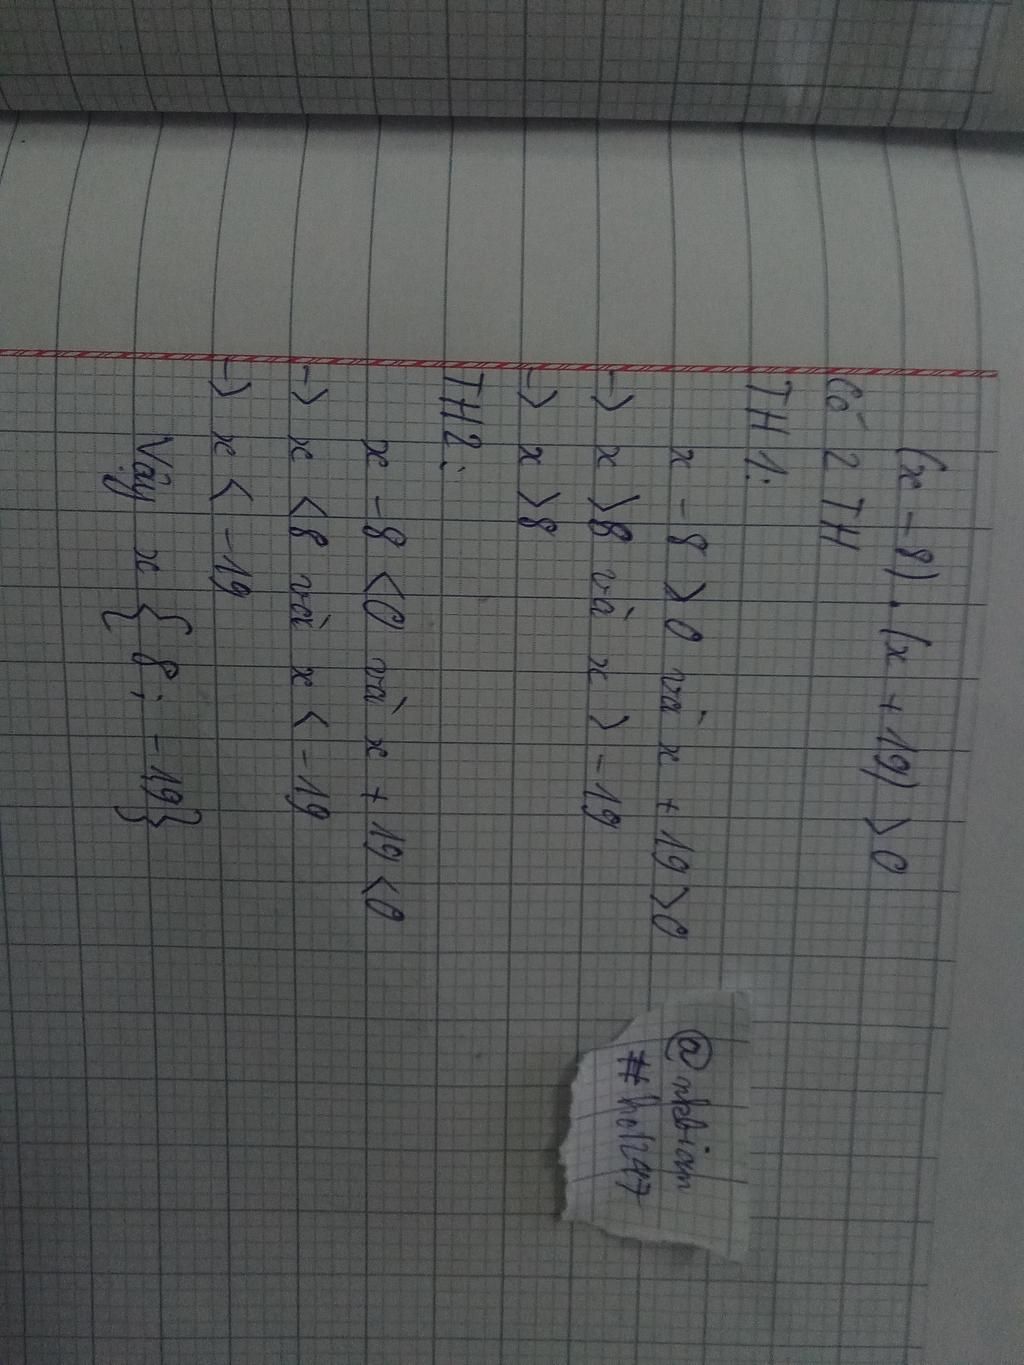 (x - 8) . (x + 19) > 0
Có 2 TH
TH 1:
x - 8 > 0 và x + 19 > 0
-> x > 8 và x > -19
-> x > 8
TH2:
x - 8 < 0 và x + 19 < 0
-> x < 8 và x < -19
-> x < -19
Vậy x { 8 ; -19}